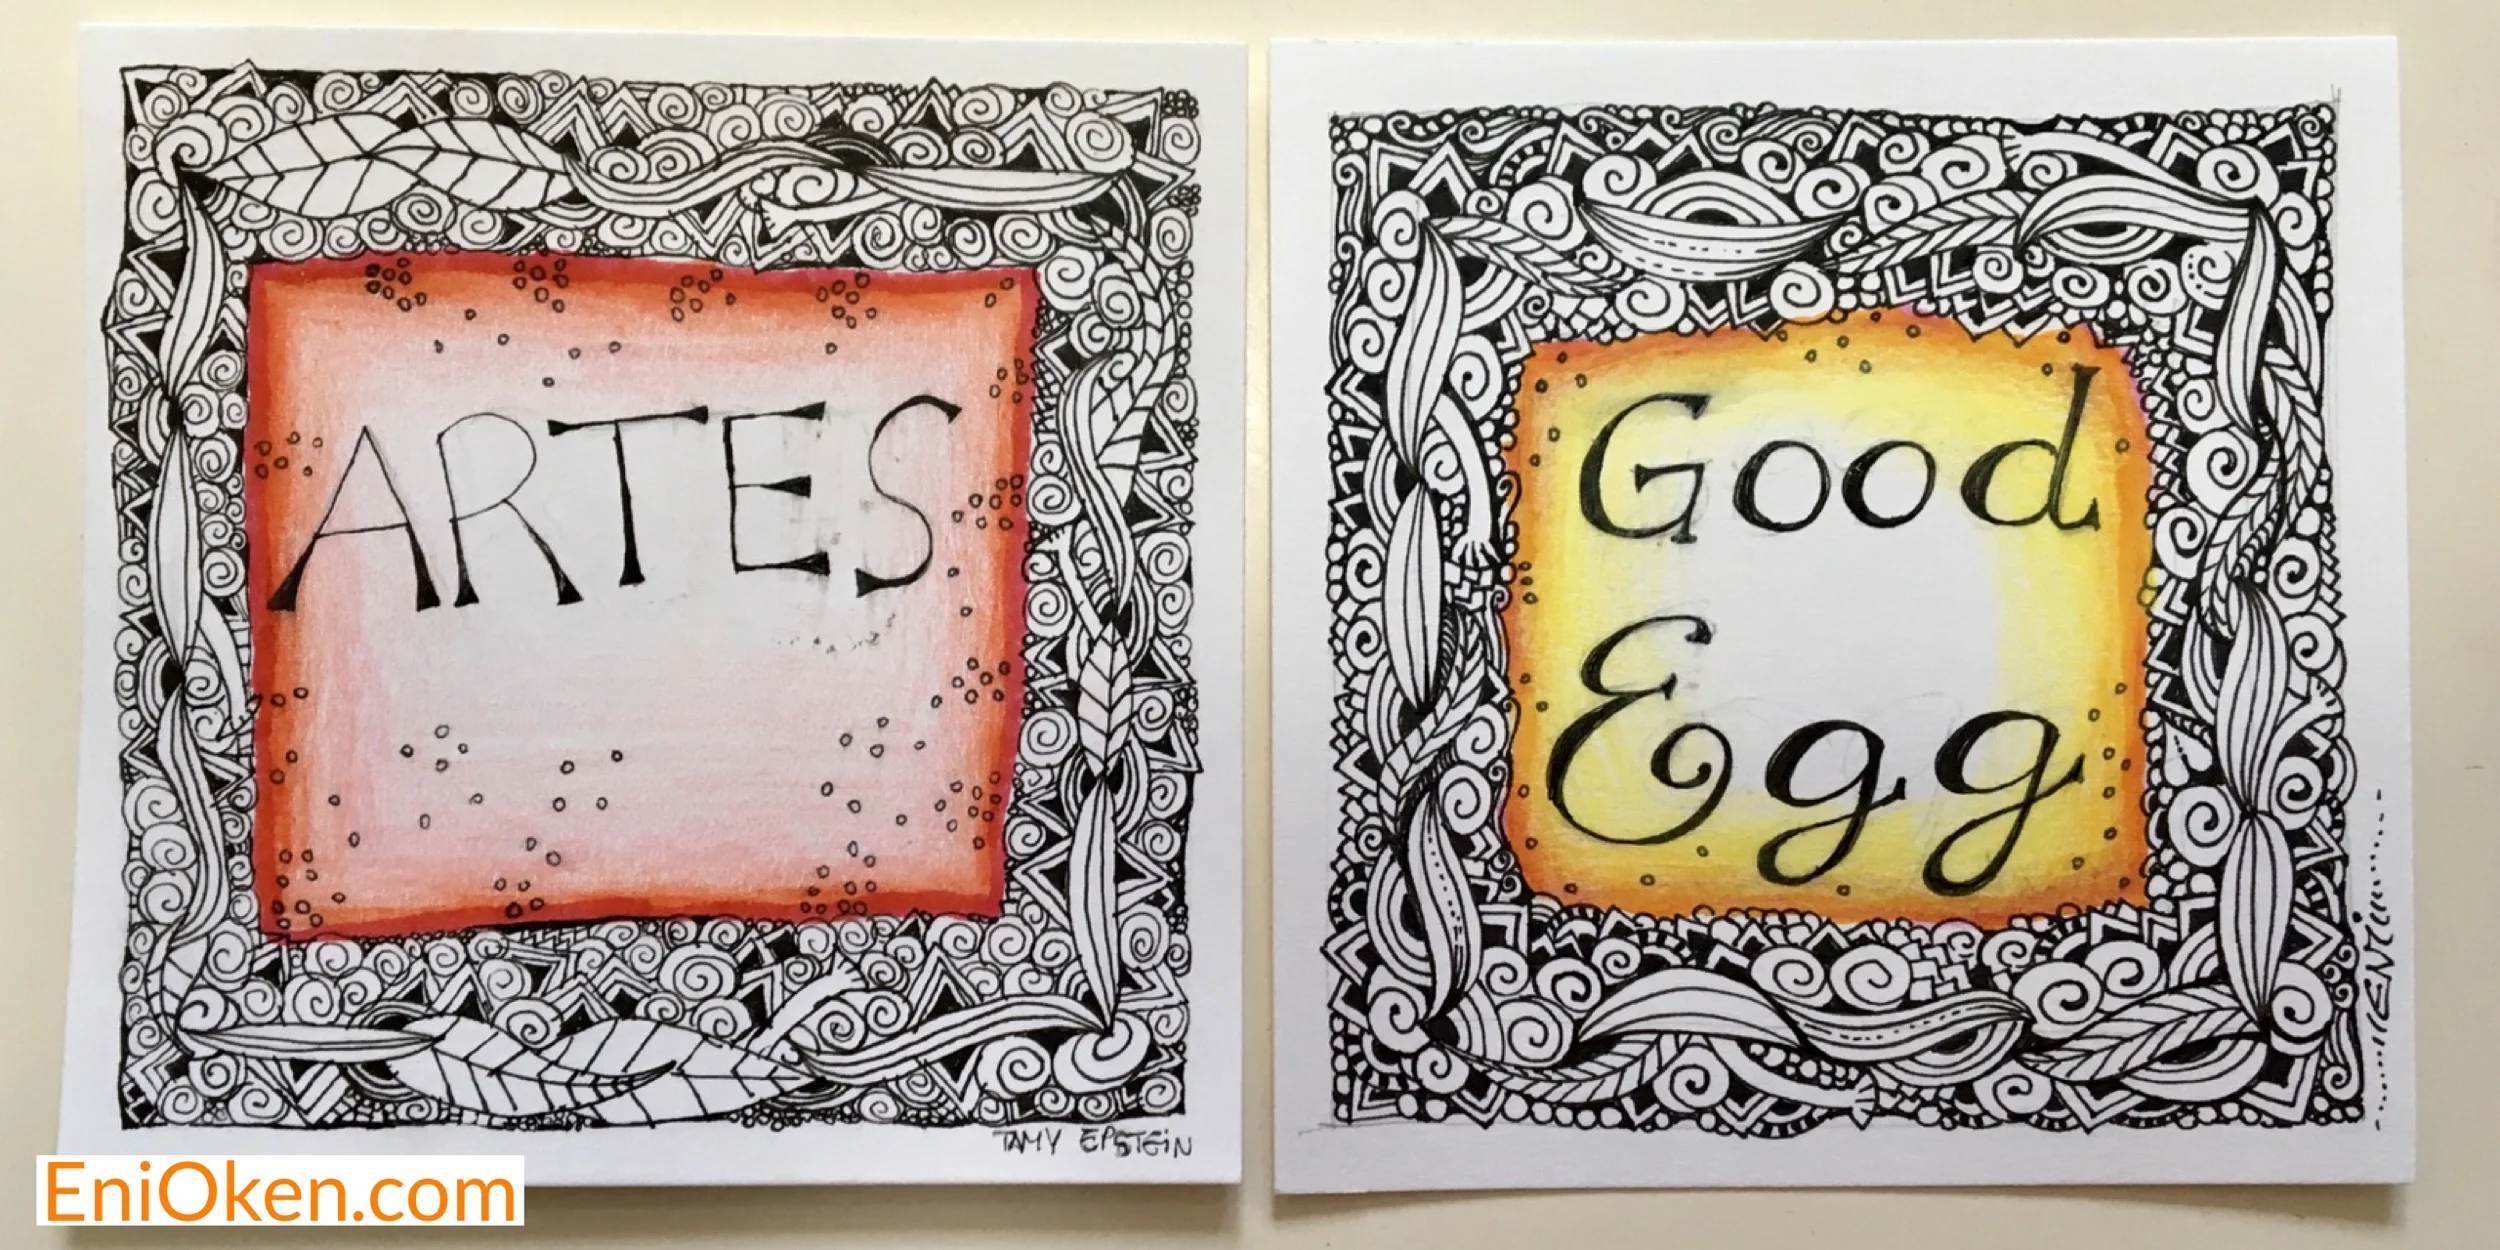 ARTES
TAMY EPSTEIN
Good
Egg
ENi
EniOken.com